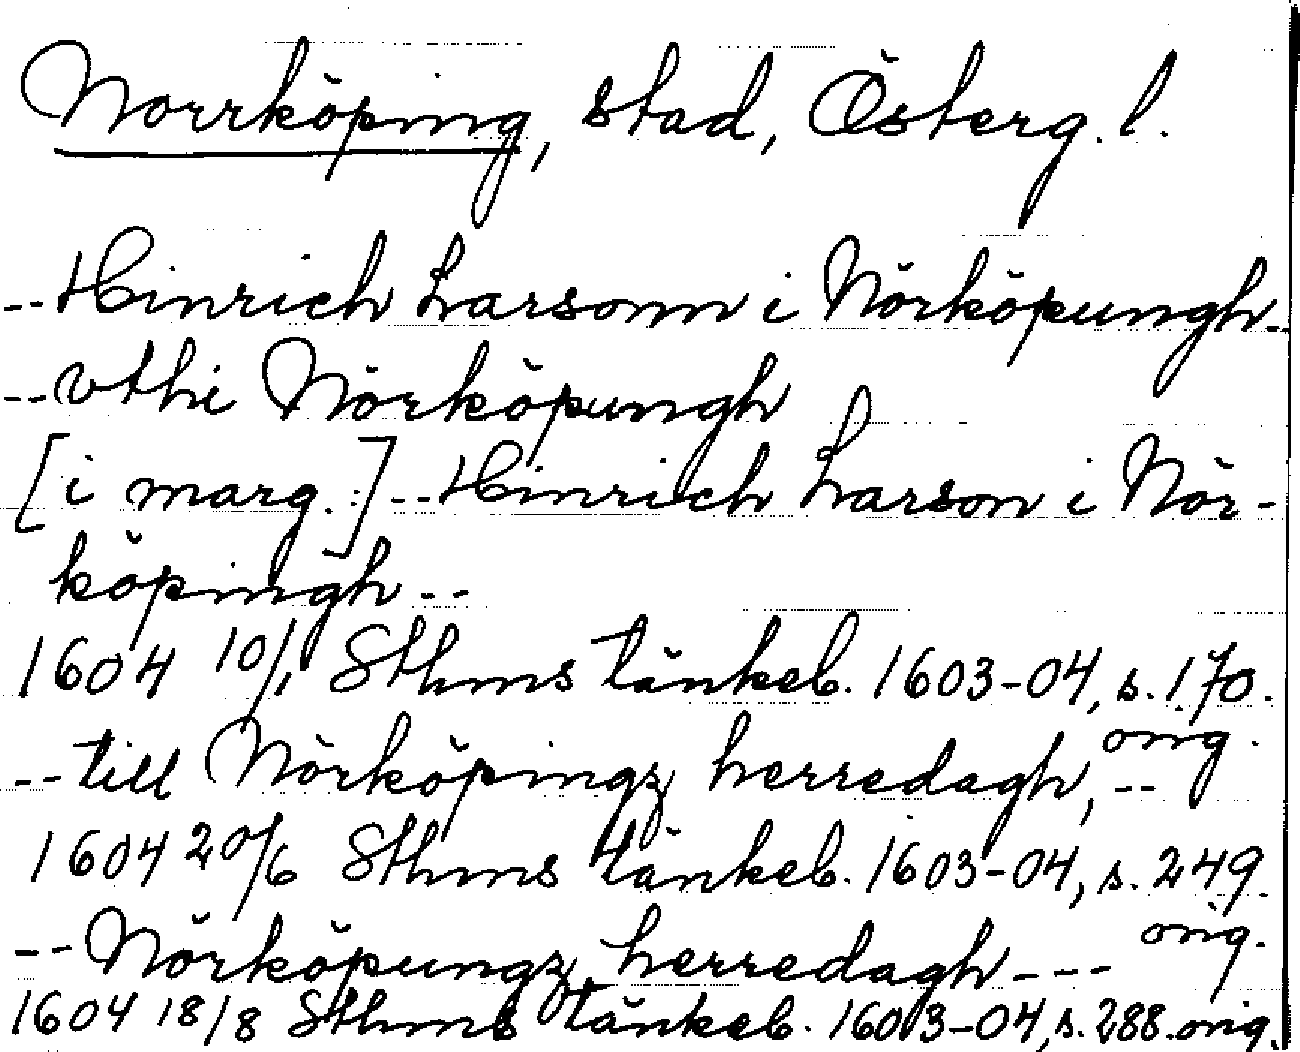 Norrköping, stad, Österg. l.
--Hinrich Larsonn i Nörköpungh--
--vthi Nörköpungh
[i marg.] --Hinrich Larson i Nör-
köpingh--
1604 10/1 Sthms tänkeb. 1603-04, s. 170.
orig.
--till Nörköpingz herredagh, --
1604 20/6 Sthms tänkeb. 1603-04, s. 249.
orig.
--Nörköpungz herredagh---
1604 18/8 Sthms tänkeb. 1603-04, s. 288. orig.